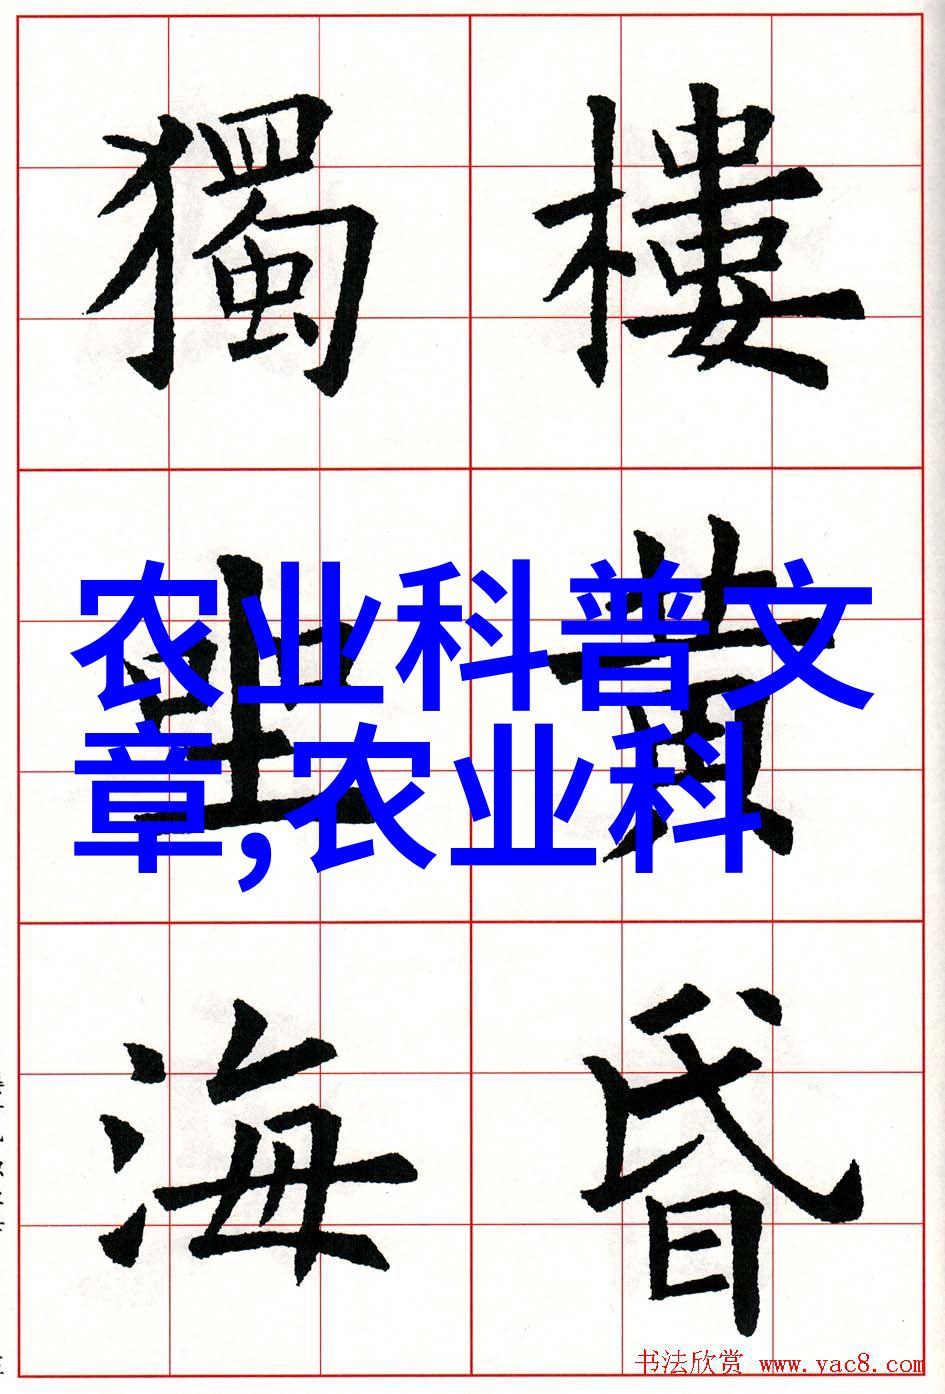 樓黃昏
獨坐海
农业科普文
章,农业科
书法欣赏 www.yac8.com